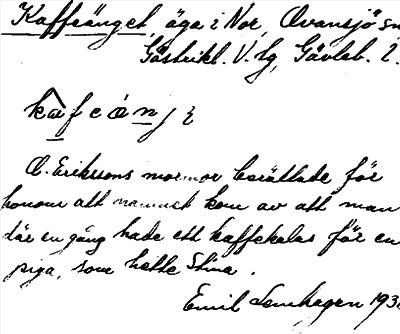 Kaffeänget, äga i Nor, Ovansjö sn
Gästrikl. V. tg, Gävleb. l.
kafeánjɛ
O. Erikssons mormor berättade för
honom att namnet kom av att man
där en gång hade ett kaffekalas för en
piga, som hette Stina.
Emil Lemhagen 193